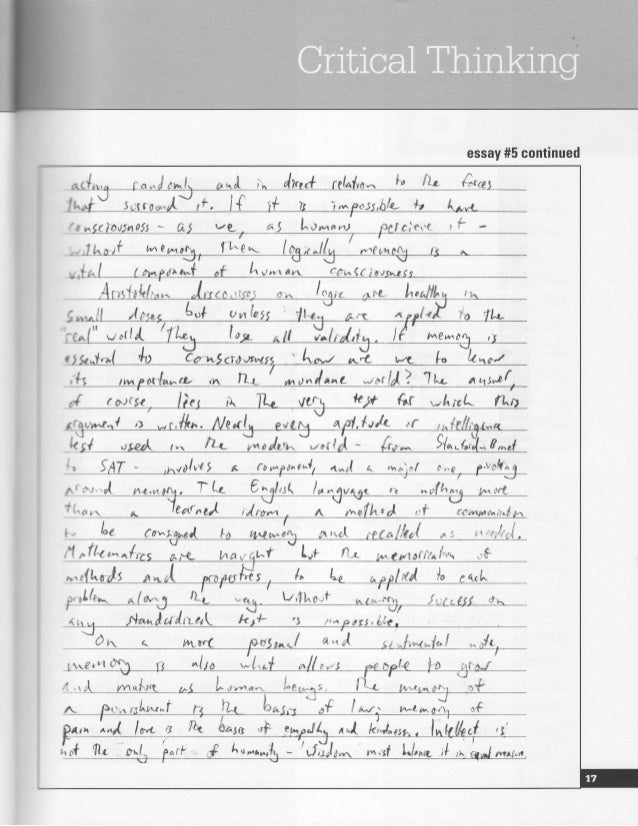 Critical Thinking
essay #5 continued
acting randomly and in direct relation to the forces
that surround it. If it is impossible to have
consciousness - as we, as humans, percieve it -
without memory, then logically memory is a
vital component of human consciousness.
Aristotelian discourses on logic are healthy in
small doses, but unless they are applied to the
"real" world they lose all validity. If memory is
essential to consciousness, how are we to know
its importance in the mundane world? The answer,
of course, lies in the very test for which this
argument is written. Nearly every aptitude or intelligence
test used in the modern world - from Stanford-Binet
to SAT - involves a component, and a major one, pivoting
around memory. The English language is nothing more
than a learned idiom, a method of communication
to be consigned to memory and recalled as needed.
Mathematics are naught but the memorization of
methods and properties, to be applied to each
problem along the way. Without memory, success on
any standardized test is impossible.
On a more personal and sentimental note,
memory is also what allows people to grow
and mature as human beings. The memory of
a punishment is the basis of law; memory of
pain and love is the basis of empathy and kindness. Intellect is
not the only part of humanity - wisdom must balance it in equal measure
17